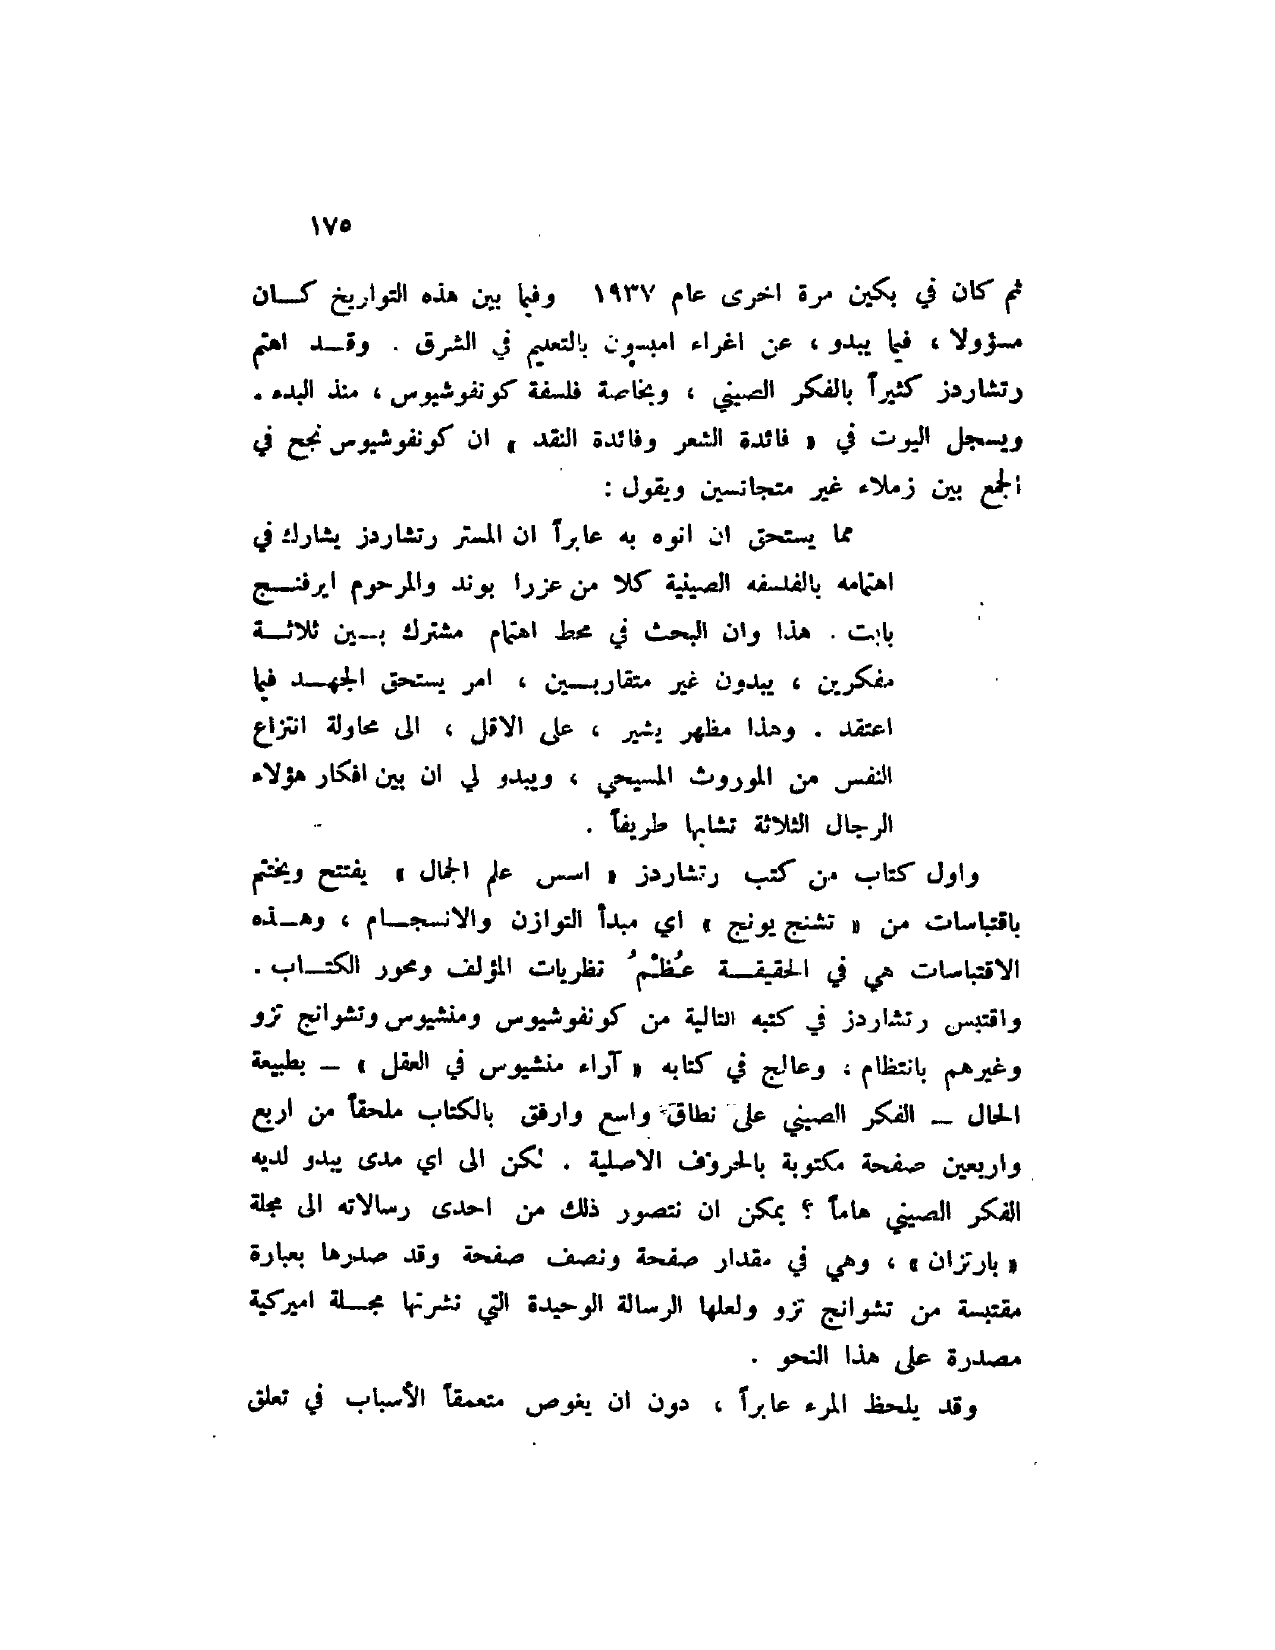 ١٧٥
ثم كان في بكين مرة اخرى عام ١٩٣٧ وفيما بين هذه التواريخ كان
مسؤولا ، فيما يبدو ، عن اغراء امبسون بالتعليم في الشرق . وقد اهتم
رتشاردز كثيراً بالفكر الصيني ، وبخاصة فلسفة كونفوشيوس ، منذ البدء .
ويسجل اليوت في « فائدة الشعر وفائدة النقد » ان كونفوشيوس نجح في
الجمع بين زملاء غير متجانسين ويقول :
مما يستحق ان انوه به عابراً ان المستر رتشاردز يشارك في
اهتمامه بالفلسفه الصينية كلا من عزرا بوند والمرحوم ايرفنج
بابت . هذا وان البحث في محط اهتمام مشترك بين ثلاثة
مفكرين ، يبدون غير متقاربين ، امر يستحق الجهد فيما
اعتقد . وهذا مظهر يشير ، على الاقل ، الى محاولة انتزاع
النفس من الموروث المسيحي ، ويبدو لي ان بين افكار هؤلاء
الرجال الثلاثة تشابها طريفاً .
واول كتاب من كتب رتشاردز « اسس علم الجمال » يفتتح ويختم
باقتباسات من « تشنج يونج » اي مبدأ التوازن والانسجام ، وهذه
الاقتباسات هي في الحقيقة عُظْمُ نظريات المؤلف ومحور الكتاب .
واقتبس رتشاردز في كتبه التالية من كونفوشيوس ومنشيوس وتشوانج تزو
وغيرهم بانتظام ، وعالج في كتابه « آراء منشيوس في العقل » – بطبيعة
الحال – الفكر الصيني على نطاق واسع وارفق بالكتاب ملحقاً من اربع
واربعين صفحة مكتوبة بالحروف الاصلية . لكن الى اي مدى يبدو لديه
الفكر الصيني هاماً ؟ يمكن ان نتصور ذلك من احدى رسالاته الى مجلة
« بارتزان » ، وهي في مقدار صفحة ونصف صفحة وقد صدرها بعبارة
مقتبسة من تشوانج تزو ولعلها الرسالة الوحيدة التي نشرتها مجلة اميركية
مصدرة على هذا النحو .
وقد يلحظ المرء عابراً ، دون ان يغوص متعمقاً الأسباب في تعلق